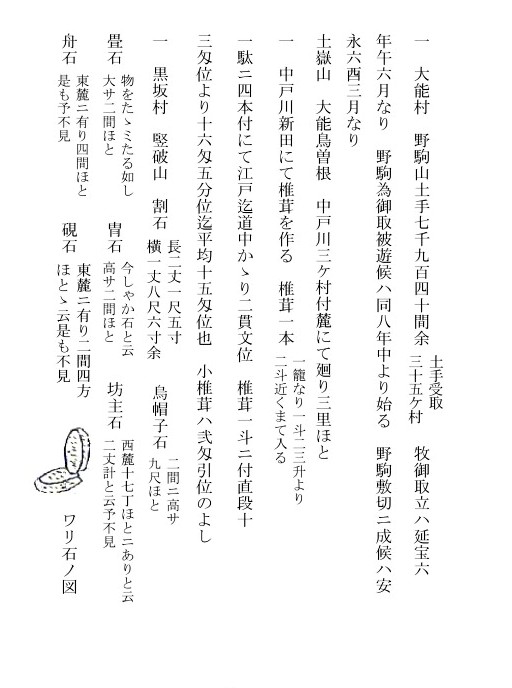 一　大能村　野駒山土手七千九百四十間余　土手受取
三十五ケ村　牧御取立ハ延宝六
年午六月なり　野駒為御取被遊候ハ同八年中より始る　野駒敷切ニ成候ハ安
永六酉三月なり
土嶽山　大能鳥曽根　中戸川三ケ村付麓にて廻り三里ほと
一　中戸川新田にて椎茸を作る　椎茸一本　一籠なり一斗二三升より
二斗近くまて入る
一駄ニ四本付にて江戸迄道中かゝり二貫文位　椎茸一斗ニ付直段十
三匁位より十六匁五分位迄平均十五匁位也　小椎茸ハ弐匁引位のよし
一　黒坂村　竪破山　割石　長二丈一尺五寸
横一丈八尺六寸余　烏帽子石　二間ニ高サ
九尺ほと
畳石　物をたゝミたる如し
大サ二間ほと　冑石　今しやか石と云
高サ二間ほと　坊主石　西麓十七丁ほとニありと云
二丈計と云予不見
舟石　東麓ニ有り四間ほと
是も予不見　硯石　東麓ニ有り二間四方
ほとゝ云是も不見　ワリ石ノ図